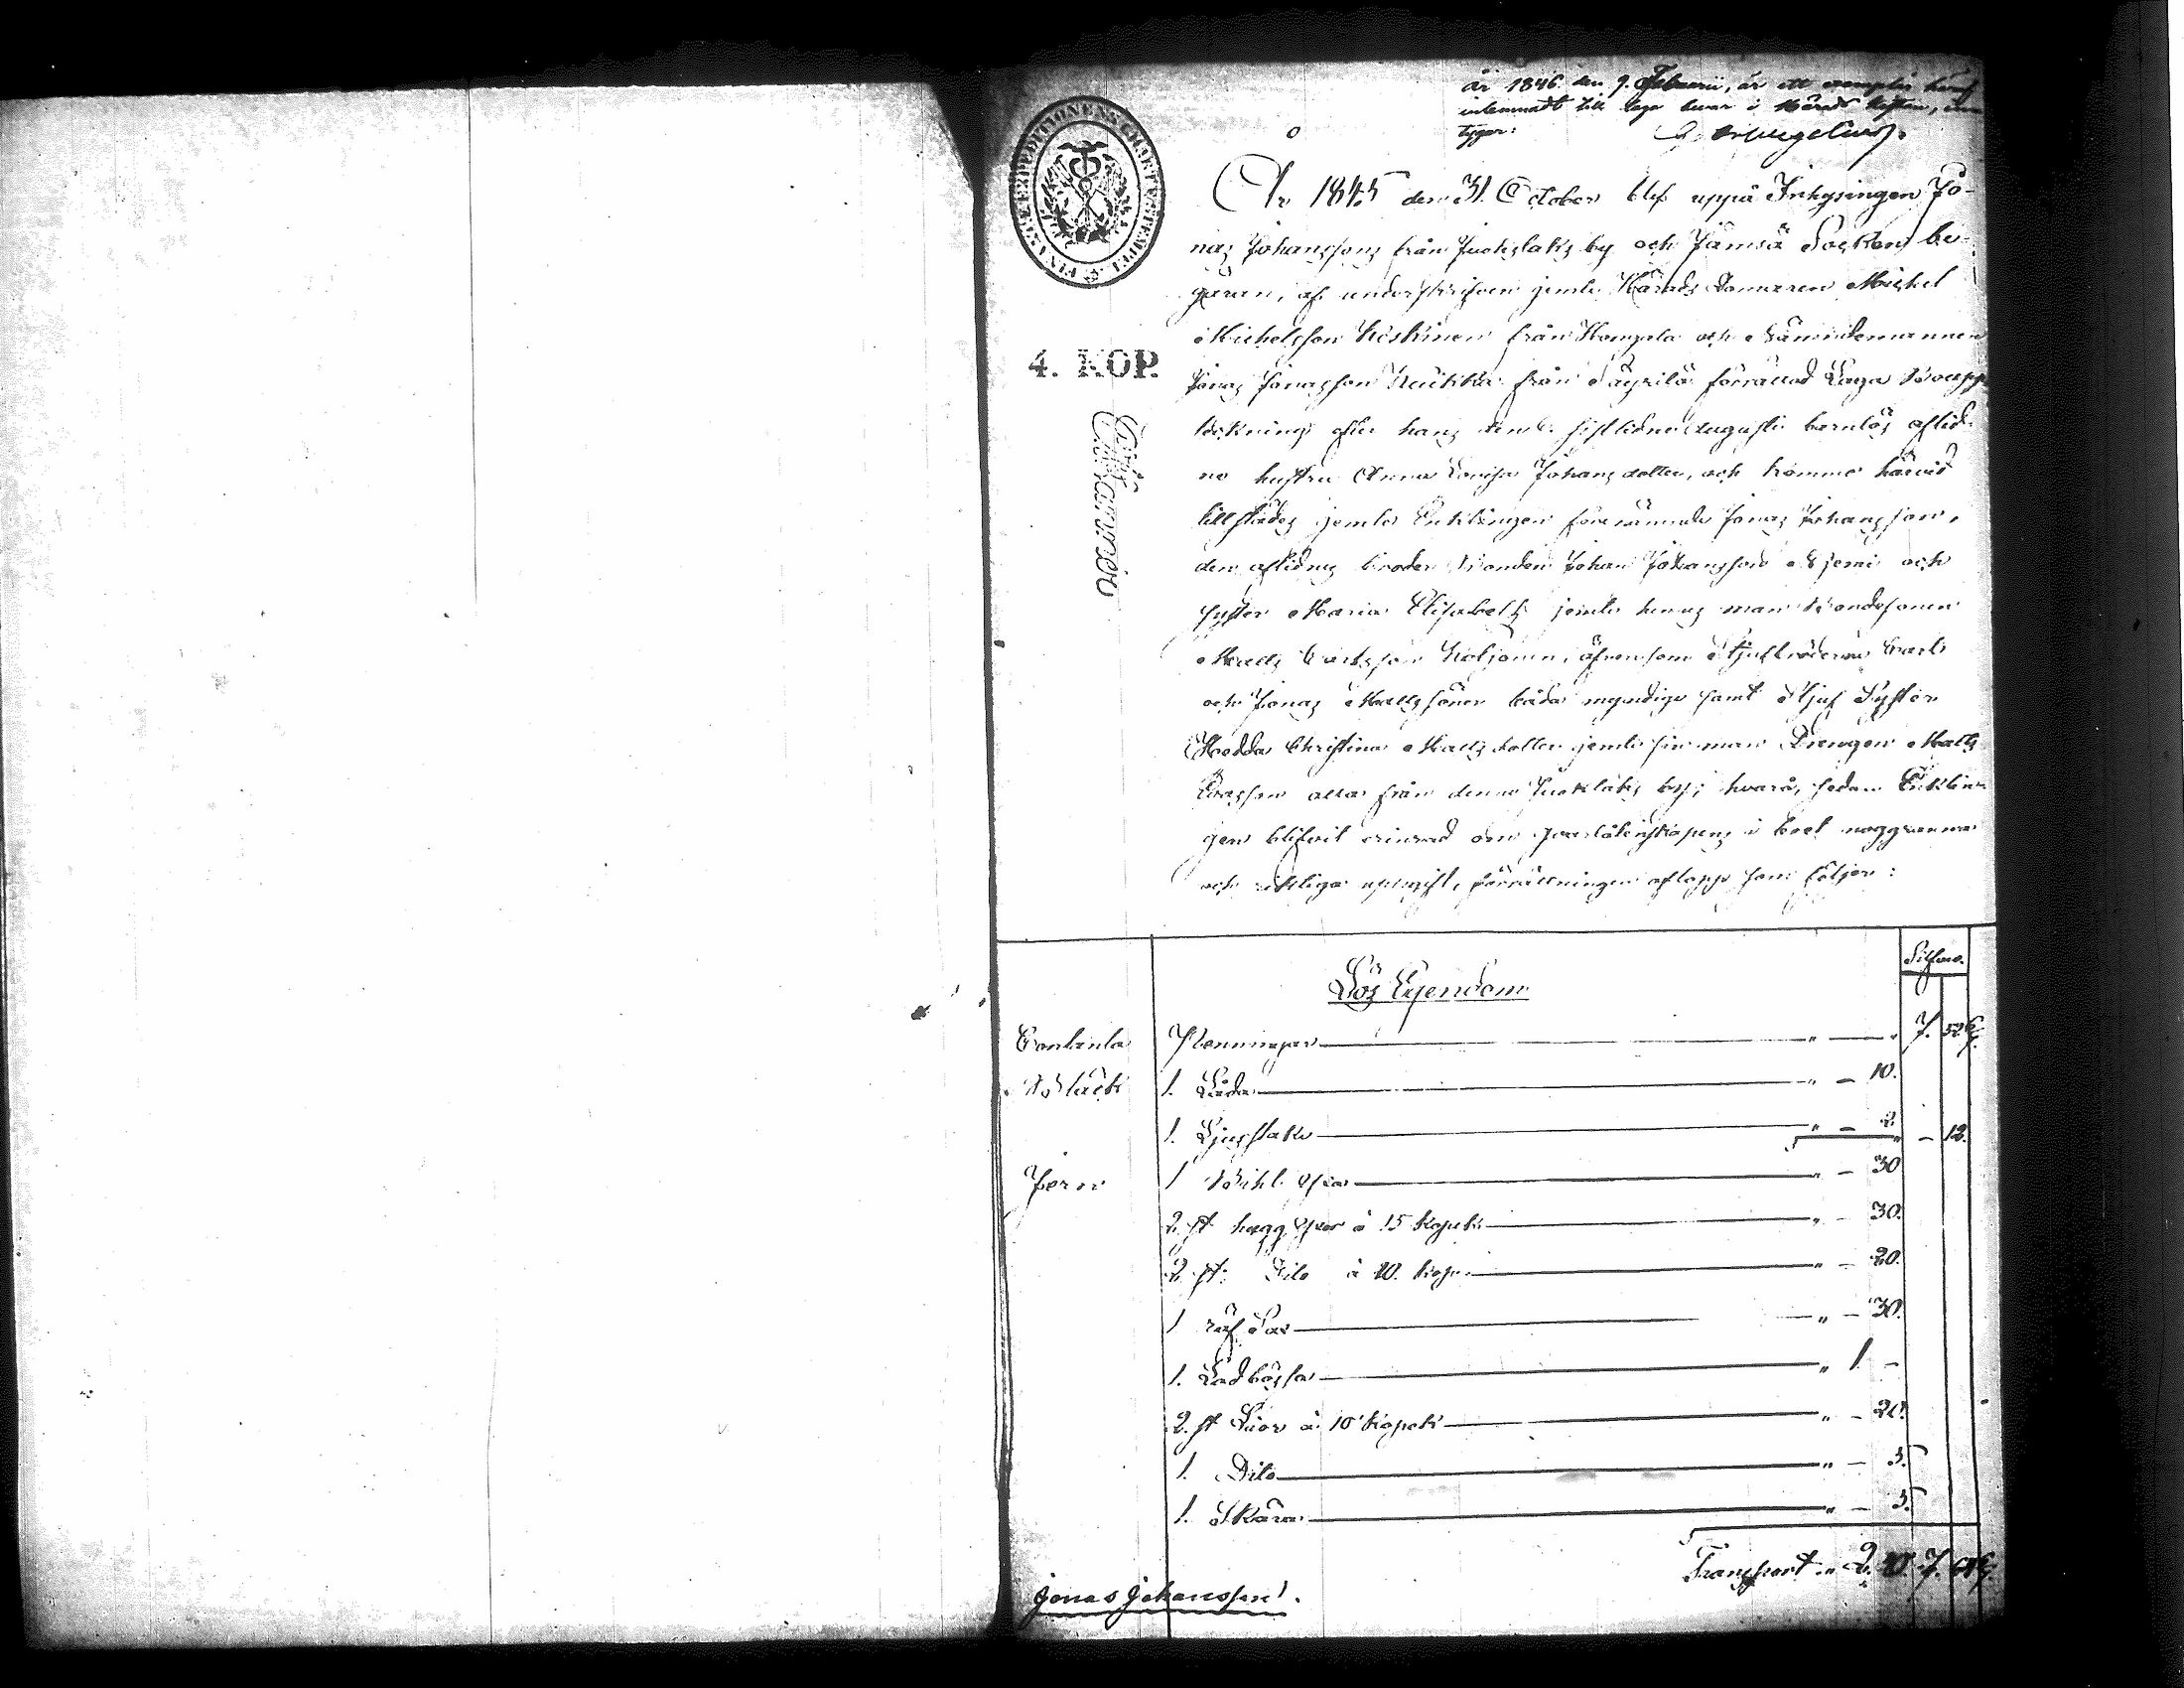 år 1846 den 9. Februarii, är ett exemplar häraf
inlemnadt till laga
tygar:
4. KOP.
År 1845 den 31. October blef uppå Inhysingen Jo-
nas Johanssons från Juokslaks by och Jämsä Socken be-
gäran, af underskrifven jemte Härads Domaren Michel
Michelsson Koskinen från och Nämndemannen
Jonas Jonasson från Säyrilä förrättad Laga Boupp
teckning efter hans den 6. sistlidne Augusti barnlös aflid-
ne hustru Anna Lovisa Johansdotter, och komme härvid
tillstädes jemte Enklingen förenämnde Jonas Johansson,
den aflidnes broder Bonden Johan Johansson Niemi och
syster Maria Elisabeth jemte hennes man Bondesonen
Matts Carlsson Koljonen, äfvensom Stjufbröderne Carl
och Jonas Mattssöner båda myndige samt Stjuf Syster
Hedda Christina Mattsdotter jemte sin man Drengen Matts
alla från denne Juokslaks by; hvarå, sedan Enklin-
gen blifvit erinrad om qvarlåtenskapens i boet noggranna
och riktiga uppgift, förrättningen aflopp som följer:
Lös Egendom
Silfver.
Contanta Penningar " — " 7. 52 6/7.
Bläck 1. Låda " — 10.
1. Ljusstake " — 2 " — 12.
Jern 1 Bihl Yxa " — 30
2. st hugg Yxor à 15 kopek " — 30.
2. st: Dito à 10. kop: " — 20.
1 räf Sax " — 30.
1. Lodbössa " 1 —
2. st Liar à 10 kopek " — 20.
1. Dito " — 5.
1. Skära " — 5.
Transport " 2. 40. 7. 64 6/7.
Jonas Johansson